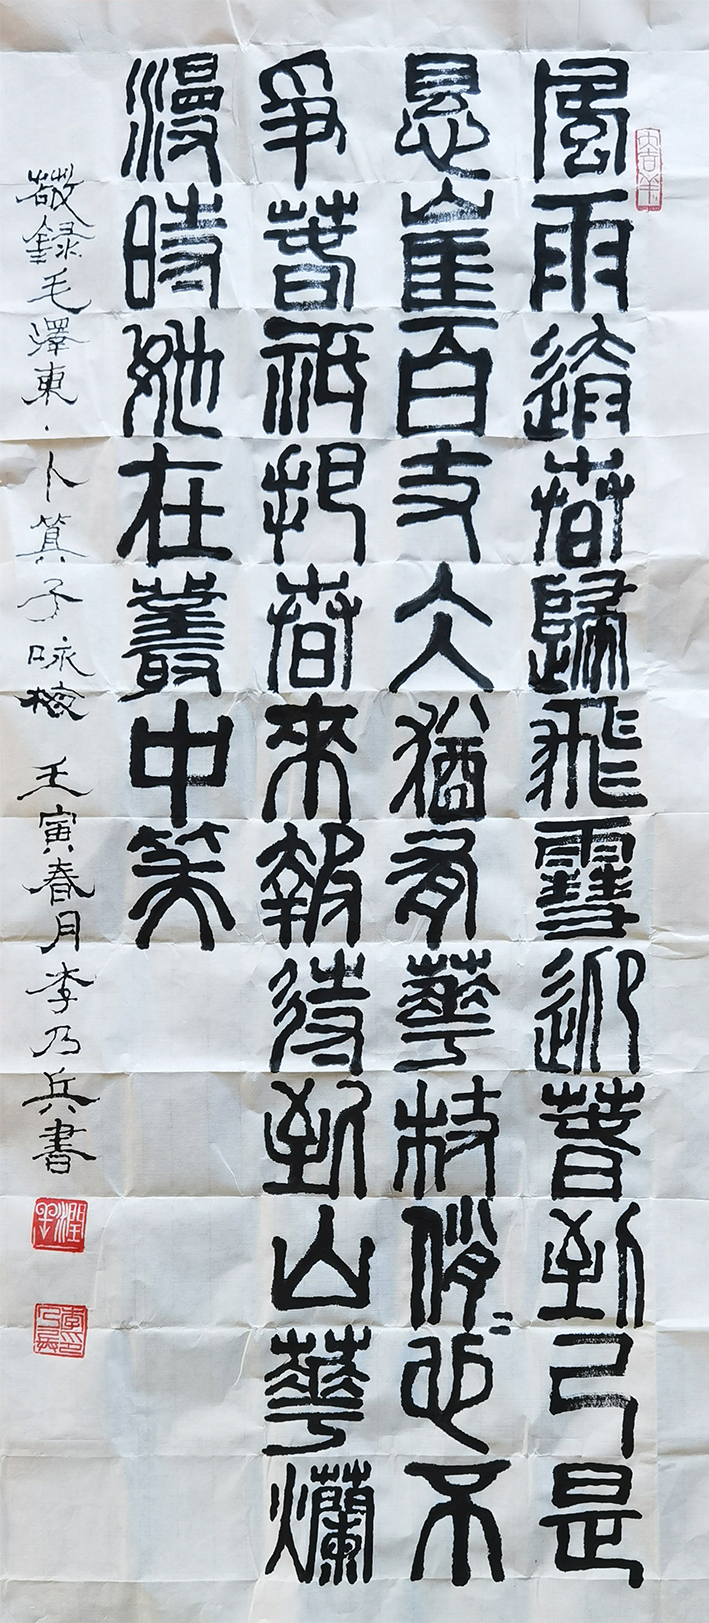 大吉羊
風雨送春歸飛雪迎春到已是
悬崖百丈仌猶有華枝俏〻也不
爭春祇把春來報待到山華爛
漫時她在叢中笑
敬錄毛澤東·卜算子咏梅 壬寅春月李乃兵書